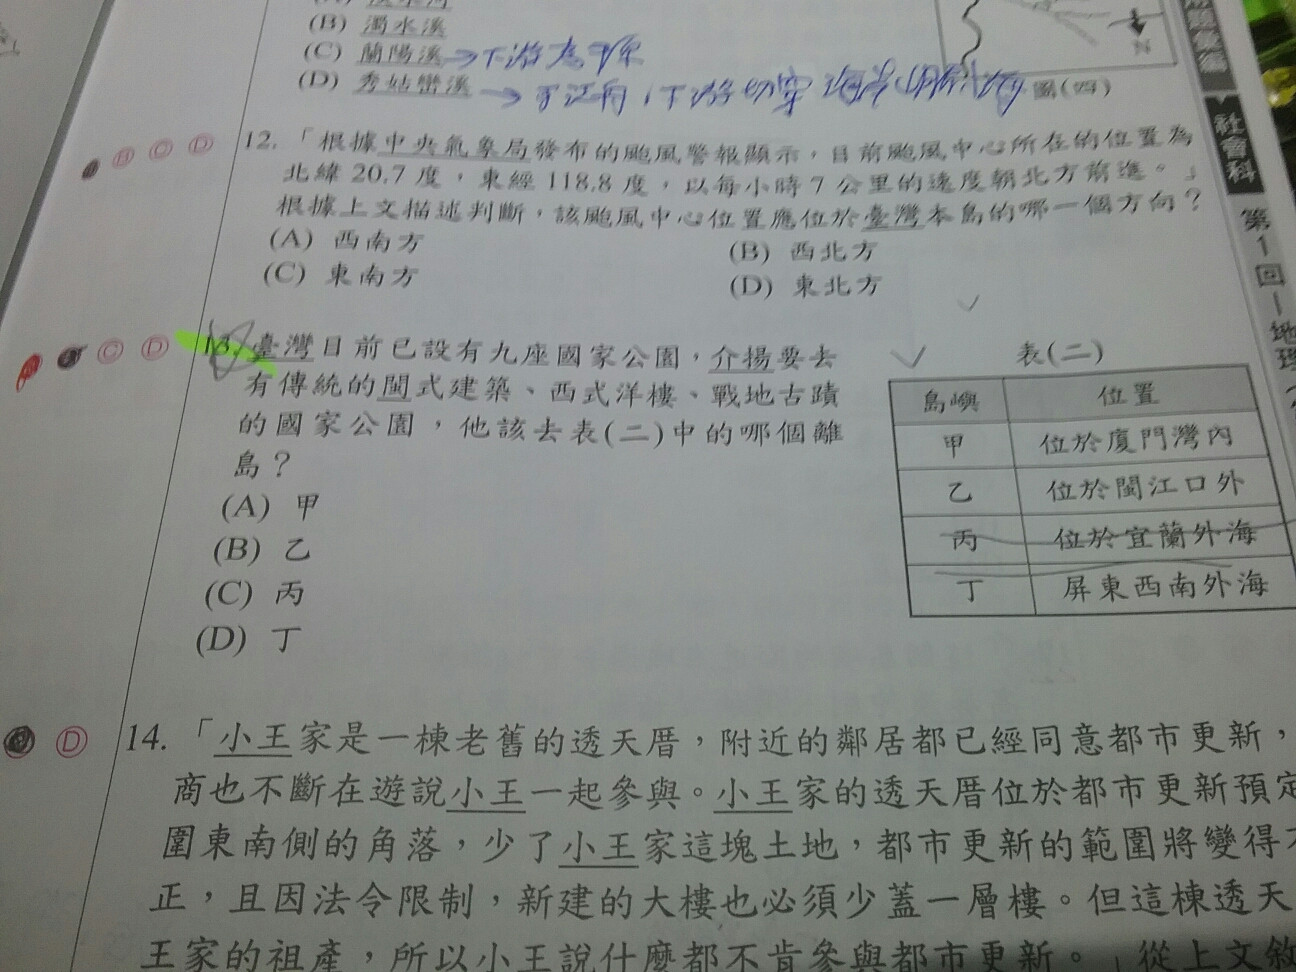 (B) 濁水溪
(C) 蘭陽溪
(D) 秀姑巒溪
圖(四)
N
社會科
第1回－地理
12. 「根據中央氣象局發布的颱風警報顯示，目前颱風中心所在的位置為
北緯 20.7 度，東經 118.8 度，以每小時 7 公里的速度朝北方前進。」
根據上文描述判斷，該颱風中心位置應位於臺灣本島的哪一個方向？
(A) 西南方
(B) 西北方
(C) 東南方
(D) 東北方
B C D
C D
13. 臺灣目前已設有九座國家公園，介揚要去
有傳統的閩式建築、西式洋樓、戰地古蹟
的國家公園，他該去表(二)中的哪個離
島？
(A) 甲
(B) 乙
(C) 丙
(D) 丁
表(二)
島嶼 位置
甲 位於廈門灣內
乙 位於閩江口外
丙 位於宜蘭外海
丁 屏東西南外海
D
14. 「小王家是一棟老舊的透天厝，附近的鄰居都已經同意都市更新，
商也不斷在遊說小王一起參與。小王家的透天厝位於都市更新預定
圍東南側的角落，少了小王家這塊土地，都市更新的範圍將變得
正，且因法令限制，新建的大樓也必須少蓋一層樓。但這棟透天
王家的祖產，所以小王說什麼都不肯參與都市更新。」從上文敘